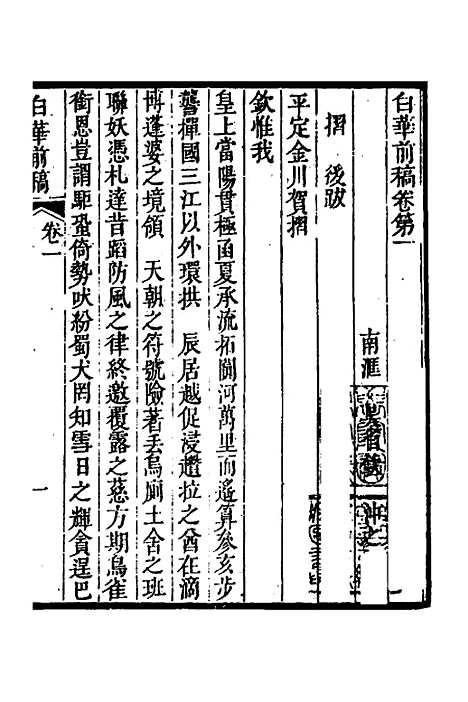 白華前稿卷第一
南滙
冲之
摺 後跋
平定金川賀摺
欽惟我
皇上當陽貫極函夏承流拓闢河萬里而遙算參亥步
讋襌國三江以外環拱 辰居越促浸趲拉之酋在滴
博蓬婆之境領 天朝之符號險著丟烏廁土舍之班
聯妖憑札達昔蹈防風之律終邀覆露之慈方期鳥雀
銜恩豈謂駏蛩倚勢吠紛蜀犬罔知雪日之輝貪逞巴
白華前稿 卷一 一